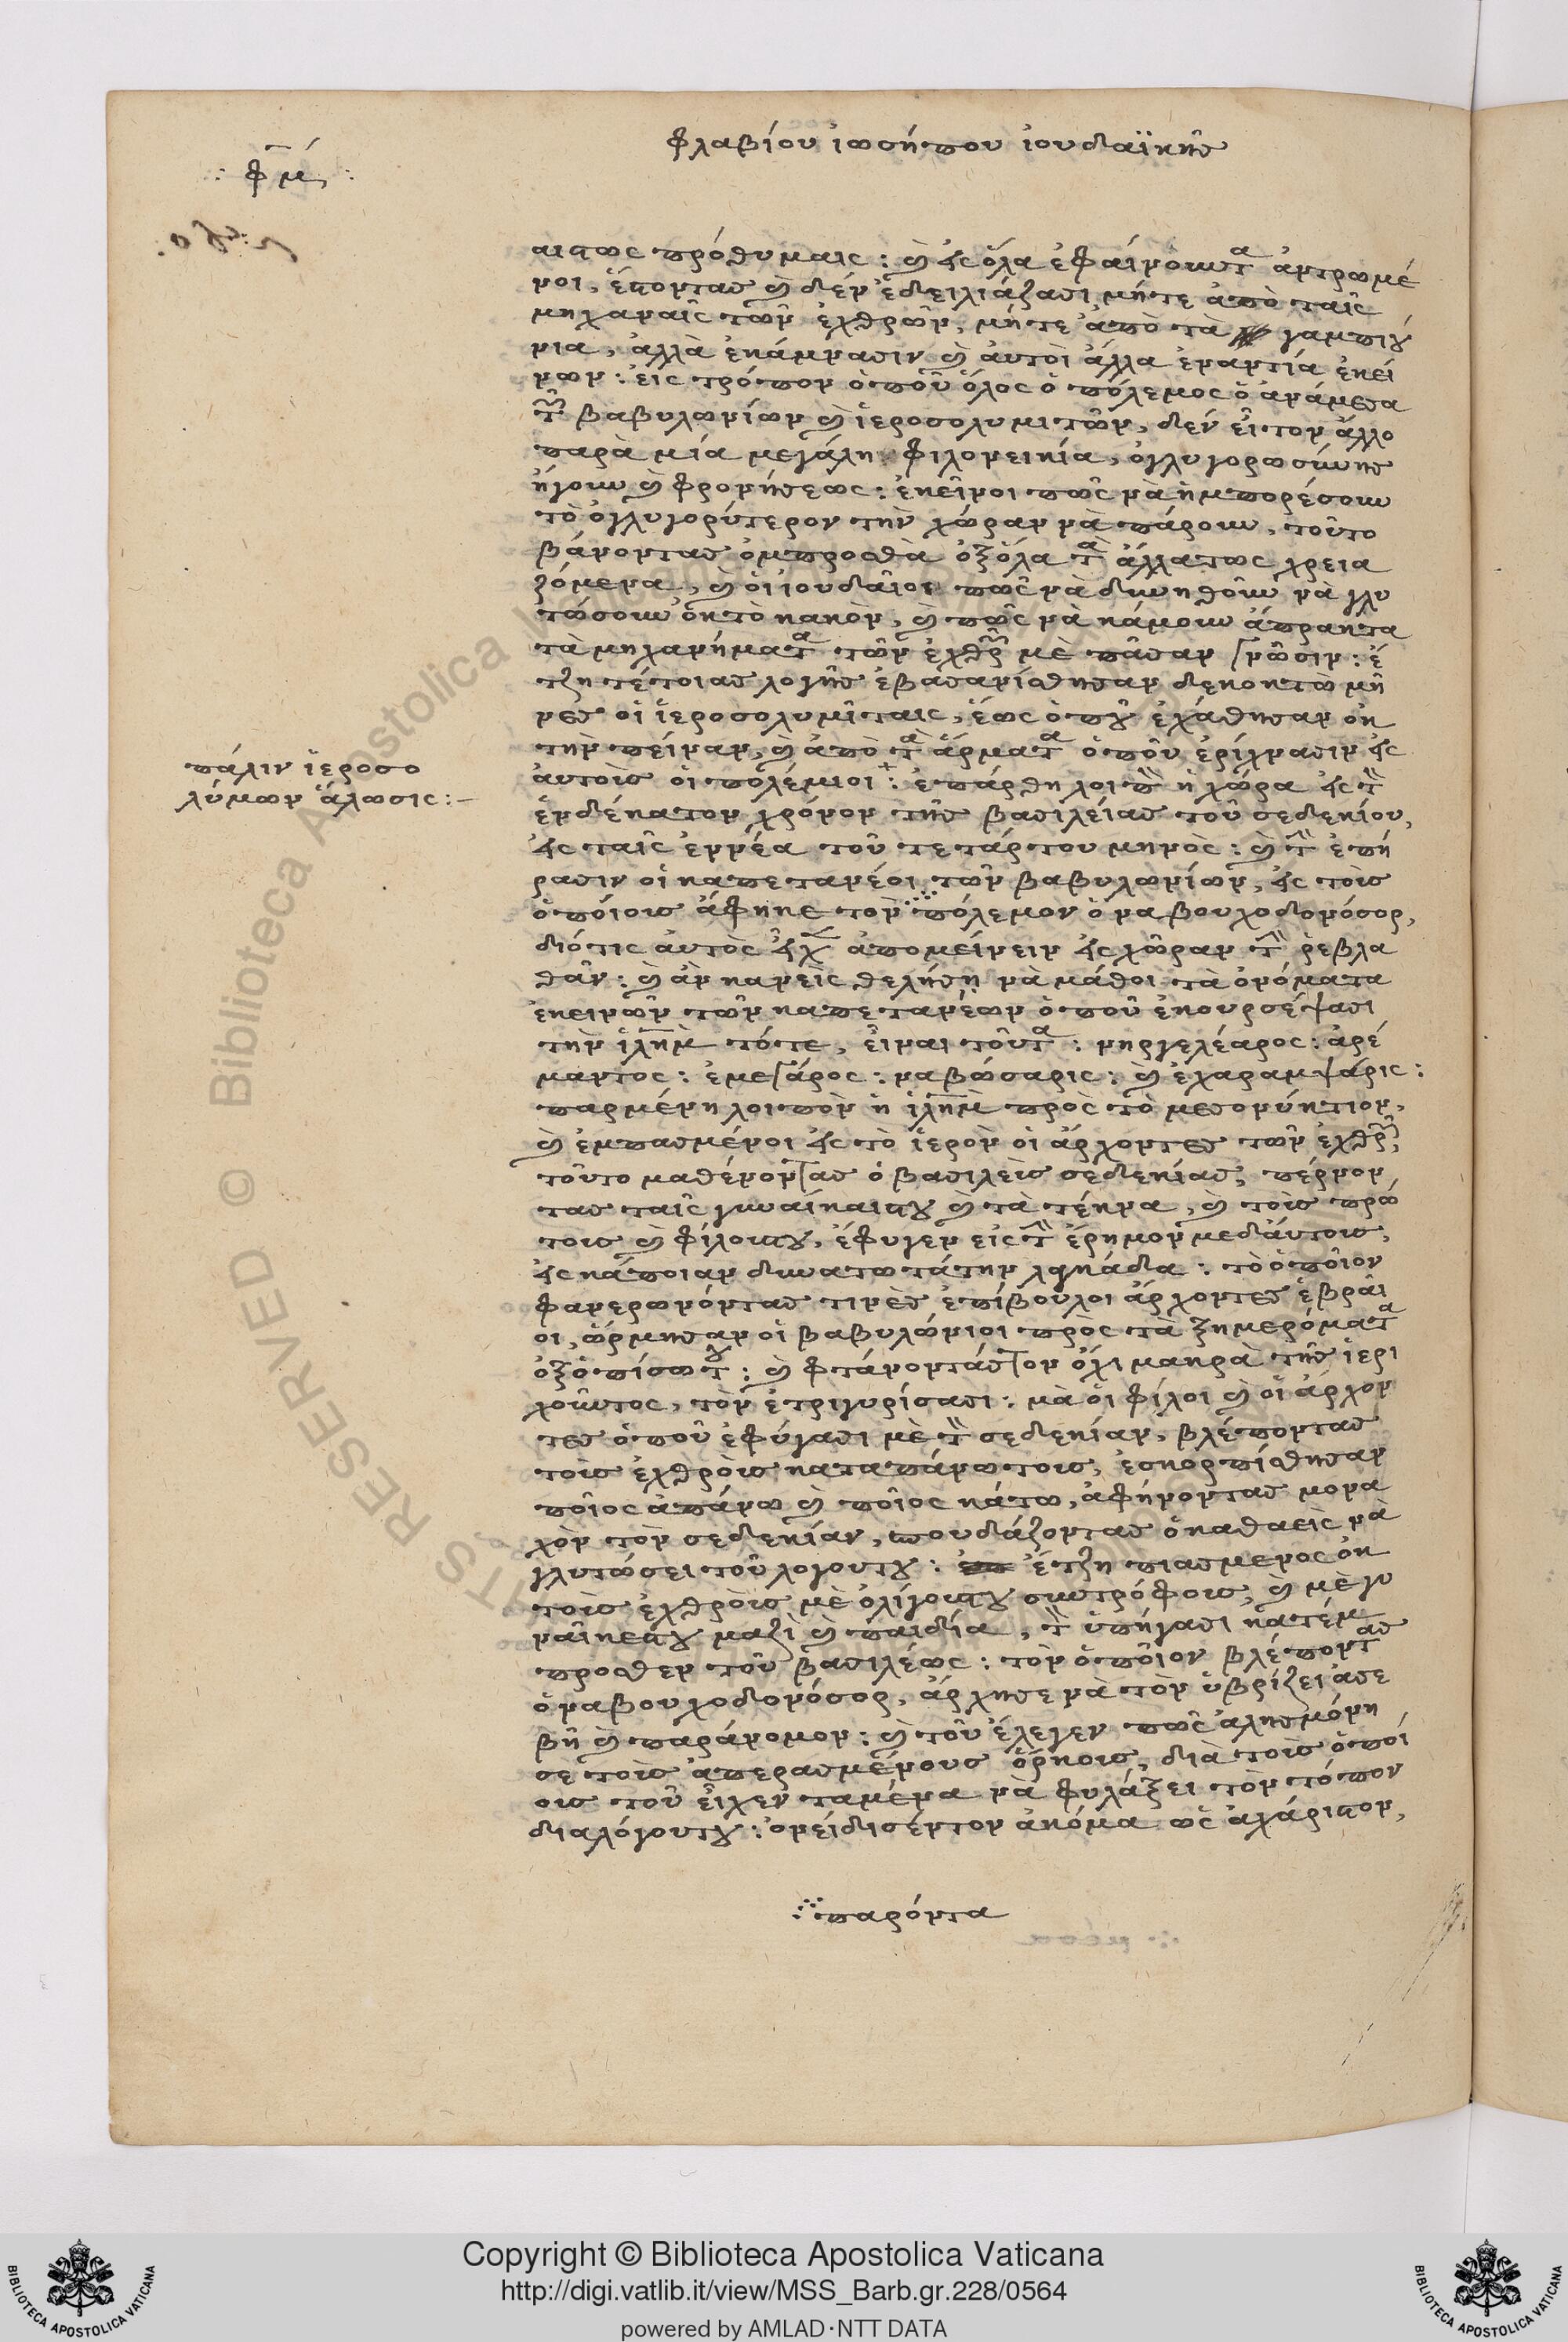 φλαβίου ἰωσήπου ἰουδαϊκῆσ
: φ̅μ́ :
αιτως πρόθυμαις: ϗ εἰς ὅλα ἐφαίνουντα ἀντρωμέ
νοι, ἔποντασ ϗ δὲν ἐδειλιάζασι μήτε ἀπὸ ταῖς
μηχαναῖς τῶν ἐχθρῶν, μήτε ἀπὸ τὰ γαμπιού
νια, ἀλλὰ ἐκάμνασιν ϗ ἀυτοὶ ἄλλα ἐναντία ἐκεί
νων: εἰς τρόπον ὁποῦ ὅλος ὁ πόλεμος ὁ ἀνάμεσα
τῶν βαβυλωνίων ϗ ἱεροσολυμιτῶν, δέν εἶτον ἄλλο
παρὰ μία μεγάλη φιλονεικία, ὀγλυγοροσύνησ
ἤγουν ϗ φρονήσεως: ἐκεῖνοι πῶς νὰ ἠμπορέσουν
τὸ ὀγλυγορύτερον τὴν χώραν νὰ πάρουν, τοῦτο
βάνοντασ ὀμπροσθὰ ὀξόλα τὰ ἄλλατως χρεια
ζόμενα, ϗ ὁι ἰουδαῖοι πῶς νὰ δυνηθοῦν νὰ γλυ
τώσουν ὀκ τὸ κακὸν, ϗ πῶς νὰ κάμουν ἄπρακτα
τὰ μηχανήματα τῶν ἐχθρῶν μὲ πᾶσαν γνῶσιν: ἔ
τζη τέτοιασ λογῆσ ἐβασανίσθησαν δεκοκτὼ μῆ
νεσ οἱ ἱεροσολυμῖταις, ἕως ὁποῦ ἐχάθησαν ὀκ
τὴν πείναν, ϗ ἀπὸ τὰ ἄρματα ὁποῦ ἐρίχνασιν εἰς
ἀυτοὶσ οἱ πολέμιοι: ἐπάρθη λοιπὸν ἡ χώρα εἰς τὸν
ἑνδέκατον χρόνον τῆσ βασιλείασ τοῦ σεδεκίου,
εἰς ταῖς ἐννέα τοῦ τετάρτου μηνὸς: ϗ τὴν ἐπή
ρασιν οἱ καπετανέοι τῶν βαβυλωνίων, εἰς τοὺσ
ὁποίουσ ἄφηκε τὸν πόλεμον ὁ ναβουχοδονόσορ,
διότις ἀυτὸς εἶχεν ἀπομείνειν εἰς χῶραν τὴν ῥεβλα
θᾶν: ϗ ἂν κανεὶς θελήση νὰ μάθοι τὰ ὀνόματα
ἐκεινῶν τῶν καπετανέων ὁποῦ ἐκουρσέψασι
τὴν ἱλημ τότε, εἶναι τοῦτα: νηργελέαρος: ἀρέ
μαντος: ἐμεγάρος: ναβώσαρις: ϗ ἐχαραμψάρις:
παρμένη λοιπὸν ἡ ἱλημ πρὸς τὸ μεσονύκτιον,
ϗ ἐμπασμένοι εἰς τὸ ἱερὸν οἱ ἄρχοντεσ τῶν ἐχθρῶν,
τοῦτο μαθένοντασ ὁ βασιλεὺσ σεδεκίασ, πέρνον
τασ ταῖς γυναίκαιςτου ϗ τὰ τέκνα, ϗ τοὺσ πρώ
τουσ ϗ φίλουςτου, ἔφυγεν εἰς τὴν ἔρημον μεδἀυτουσ,
εἰς κάποιαν δυνατωτάτην λαγκάδα: τὸ ὁποῖον
φανερωνόντασ τινὲσ ἐπίβουλοι ἄρχοντεσ ἑβραῖ
οι, ὥρμησαν οἱ βαβυλώνιοι πρὸς τὰ ξημερόματα
ὀξοπίσωτου: ϗ φτάνοντάστον ὄχι μακρὰ τῆσ ἱερι
χοῦντος, τὸν ἐτριγυρίσασι: μὰ ὁι φίλοι ϗ ὁι ἄρχον
τεσ ὁποῦ ἐφύγασι μὲ τὸν σεδεκίαν, βλέποντασ
τοὺσ ἐχθροὺσ καταπάνωτουσ, ἐσκορπίσθησαν
ποῖος ἀπάνω ϗ ποῖος κάτω, ἀφήνοντασ μονα
χὸν τὸν σεδεκίαν, σπουδάζοντασ ὁ καθαεὶς νὰ
γλυτώσει τοῦ λόγουτου: ἔτζη πιασμενος ὀκ
τοὺσ ἐχθροὺσ μὲ ὀλίγουςτου συντρόφουσ, ϗ μὲ γυ
ναῖκεςτου μαζὶ ϗ παιδία, τὸν ὑπήγασι κατέμ
προσθεν τοῦ βασιλέως: τὸν ὁποῖον βλέποντασ
ὁ ναβουχοδονόσορ, ἄρχησε νὰ τὸν ὑβρίζει ἀσε
βῆ ϗ παράνομον: ϗ τοῦ ἔλεγεν πῶς ἀλησμόνη
σε τοὺσ ἀπερασμένουσ ὅρκουσ, διὰ τοὺσ ὁποί
ουσ τοῦ εἶχεν ταμένα νὰ φυλάξει τὸν τόπον
διαλόγουτου: ὀνείδισέντον ἀκόμα ὡς ἀχάριστον,
πάλιν ἱεροσο
λύμων ἅλωσις:–
παρόντα
Copyright © Biblioteca Apostolica Vaticana
http://digi.vatlib.it/view/MSS_Barb.gr.228/0564
powered by AMLAD·NTT DATA